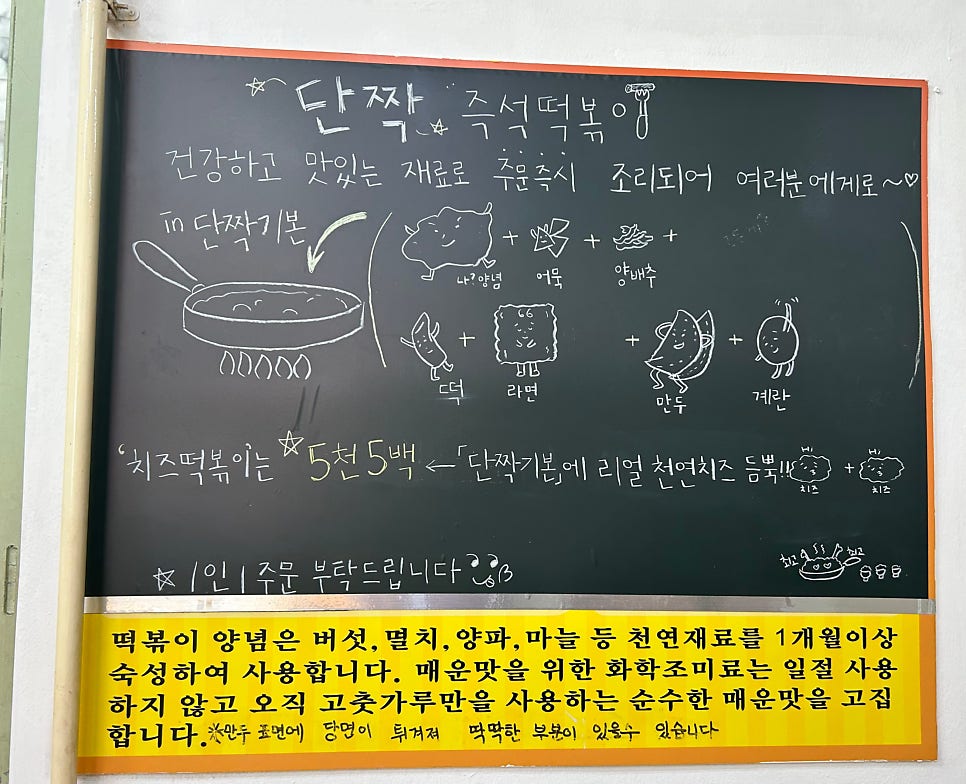 단짝 즉석떡볶이
건강하고 맛있는 재료로 주문즉시 조리되어 여러분에게로~♡
in 단짝기본
나? 양념 + 어묵 + 양배추 +
떡 + 라면 + 만두 + 계란
'치즈떡볶이'는 ☆ 5천5백 ← 「단짝기본」에 리얼 천연치즈 듬뿍!! Hi 치즈 + Hi 치즈
최고 최고
☆ 1인 1 주문 부탁드립니다
떡볶이 양념은 버섯, 멸치, 양파, 마늘 등 천연재료를 1개월이상
숙성하여 사용합니다. 매운맛을 위한 화학조미료는 일절 사용
하지 않고 오직 고춧가루만을 사용하는 순수한 매운맛을 고집
합니다. ※만두 표면에 당면이 튀겨져 딱딱한 부분이 있을수 있습니다